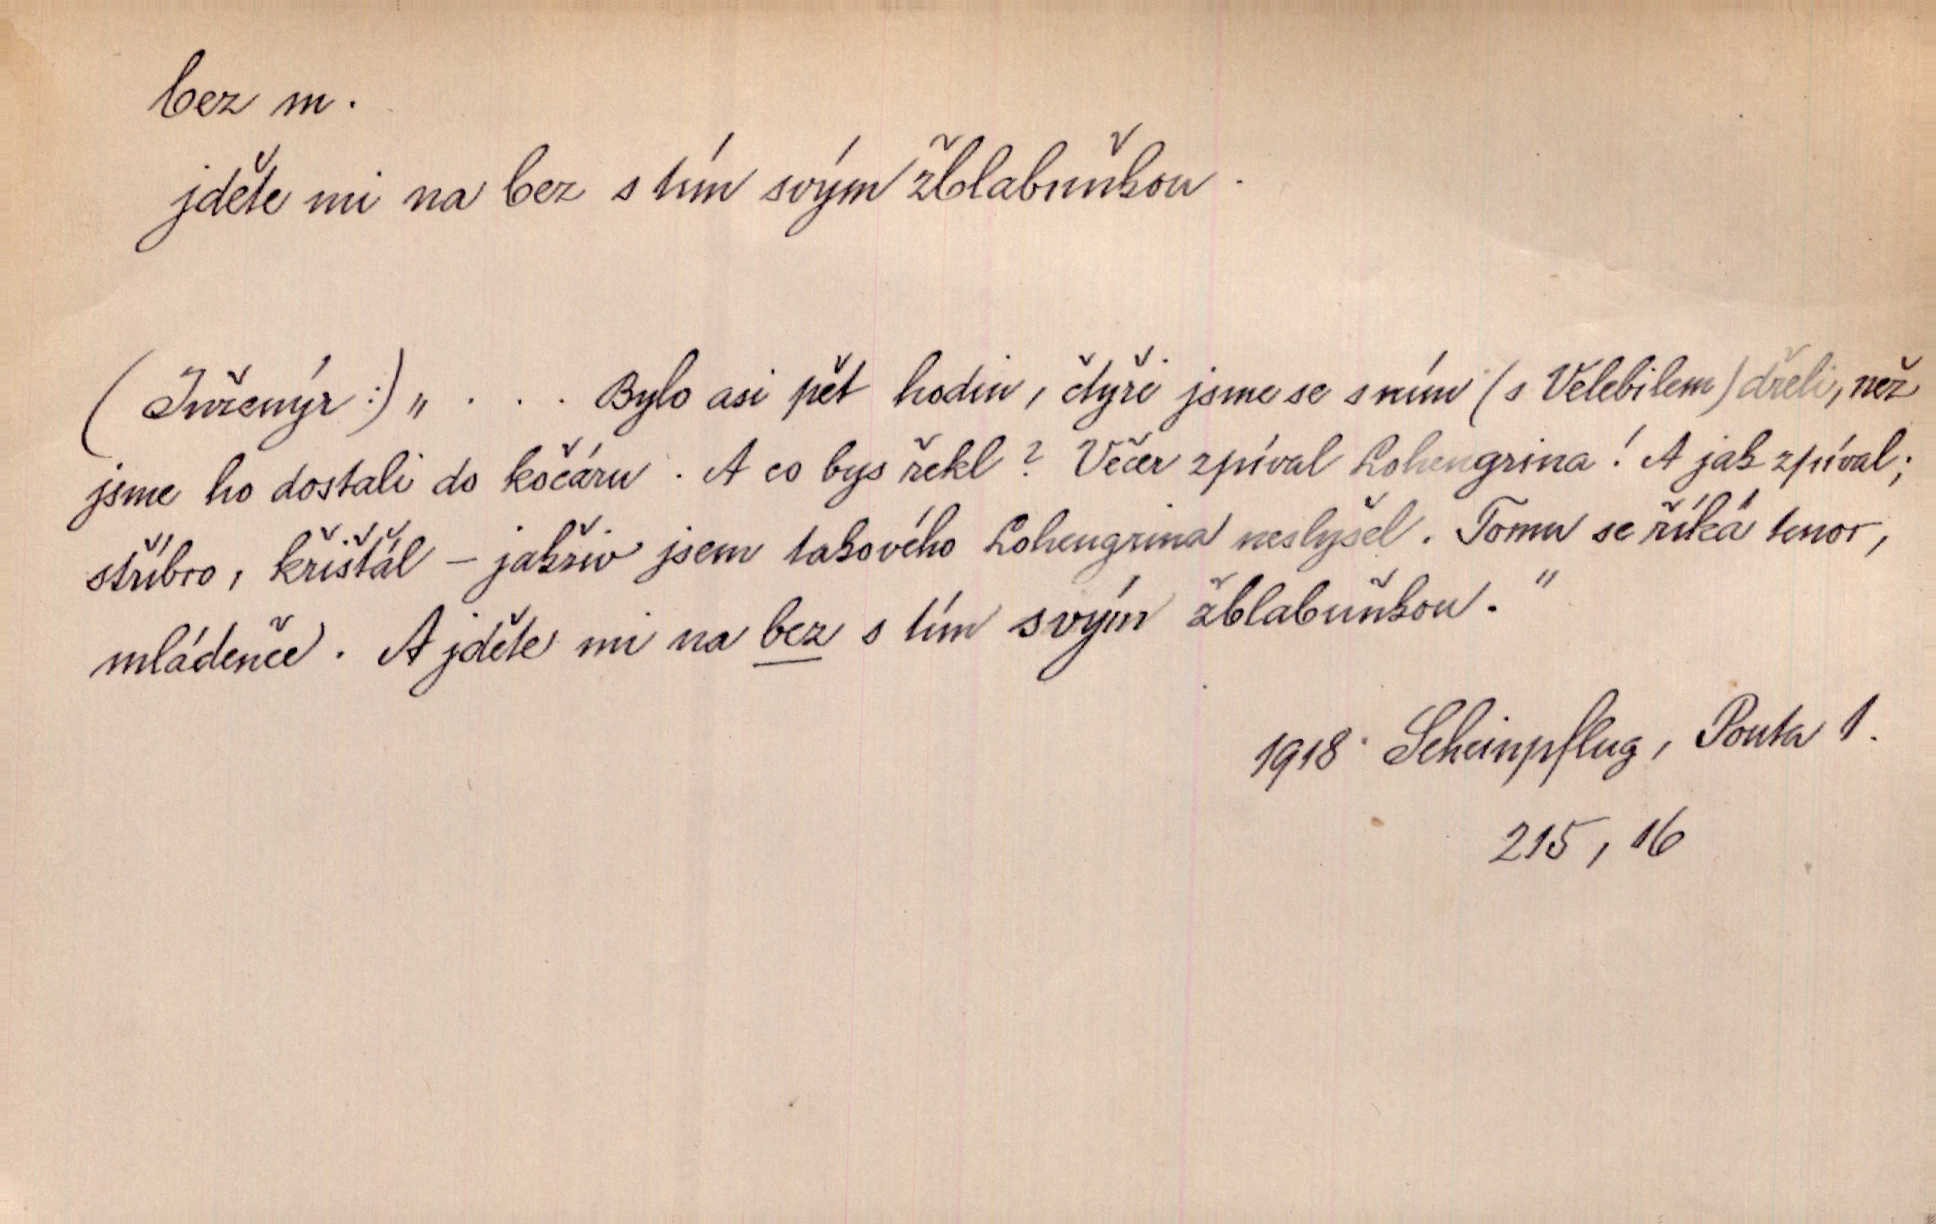 bez m.
jděte mi na bez s tím svým žblabuňkou.
(Inženýr:) „ . . . Bylo asi pět hodin, čtyři jsme se s ním (s Velebilem) dřeli, než
jsme ho dostali do kočáru. A co bys řekl? Večer zpíval Lohengrina! A jak zpíval;
stříbro, křišťál – jakživ jsem takového Lohengrina neslyšel. Tomu se říká tenor,
mládenče. A jděte mi na bez s tím svým žblabuňkou."
1918 Scheinpflug, Pouta 1.
215, 16